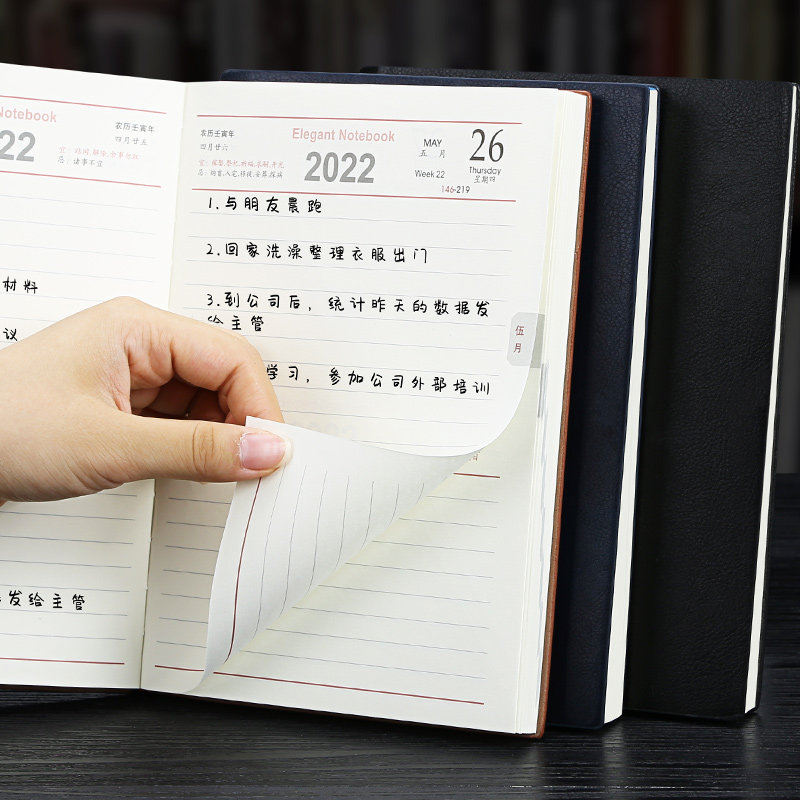 Notebook
22
农历壬寅年
四月廿五
忌: 诸事不宜
材料
议
发给主管
农历壬寅年
四月廿六
Elegant Notebook
2022
MAY
五 月
Week 22
26
Thursday
星期四
146-219
1.与朋友晨跑
2.回家洗澡整理衣服出门
3.到公司后，统计昨天的数据发
给主管
学习，参加公司外部培训
伍
月